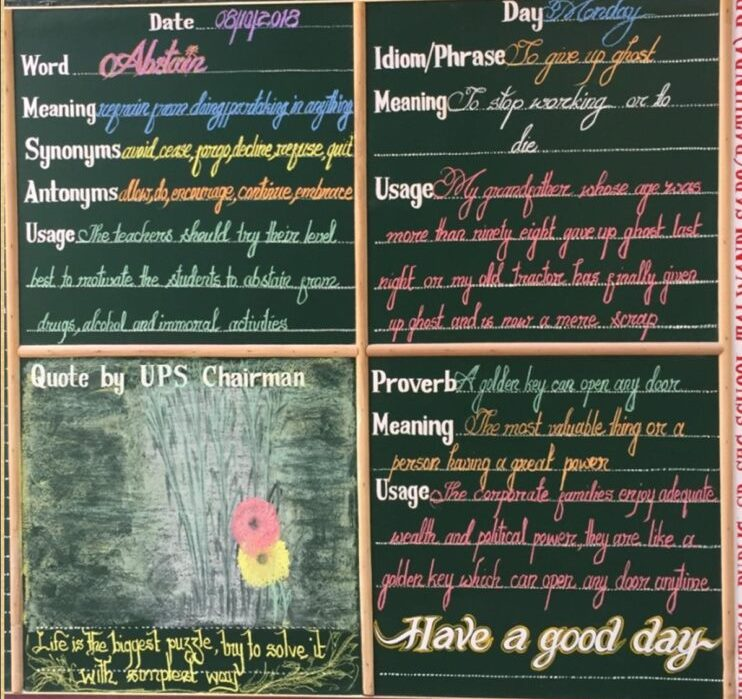 Date 08/10/2018
Word Abstain
Meaning refrain from doing/partaking in anything
Synonyms avoid, cease, forgo, decline, refuse, quit
Antonyms allow, do, encourage, continue, embrace
Usage The teachers should try their level
best to motivate the students to abstain from
drugs, alcohol and immoral activities
Day Monday
Idiom/Phrase To give up ghost
Meaning To stop working or to
die
Usage My grandfather whose age was
more than ninety eight gave up ghost last
night or my old tractor has finally given
up ghost and is now a mere scrap
Quote by UPS Chairman
Life is the biggest puzzle, try to solve it
with simplest way
Proverb A golden key can open any door
Meaning The most valuable thing or a
person having a great power
Usage The corporate families enjoy adequate
wealth and political power, they are like a
golden key which can open any door anytime
Have a good day